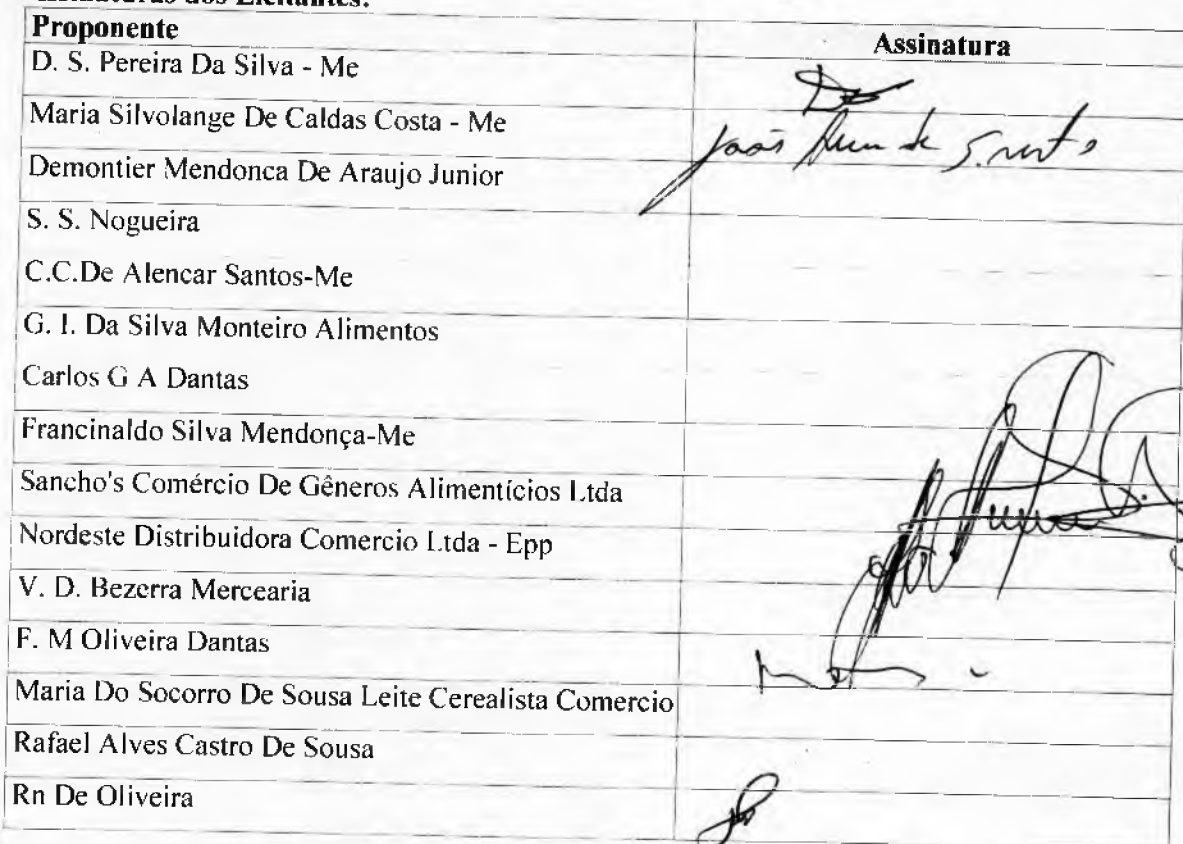 Proponente Assinatura
D. S. Pereira Da Silva - Me
Maria Silvolange De Caldas Costa - Me
João
Demontier Mendonca De Araujo Junior
S. S. Nogueira
C.C.De Alencar Santos-Me
G. I. Da Silva Monteiro Alimentos
Carlos G A Dantas
Francinaldo Silva Mendonça-Me
Sancho's Comércio De Gêneros Alimentícios Ltda
Nordeste Distribuidora Comercio Ltda - Epp
V. D. Bezerra Mercearia
F. M Oliveira Dantas
Maria Do Socorro De Sousa Leite Cerealista Comercio
Rafael Alves Castro De Sousa
Rn De Oliveira